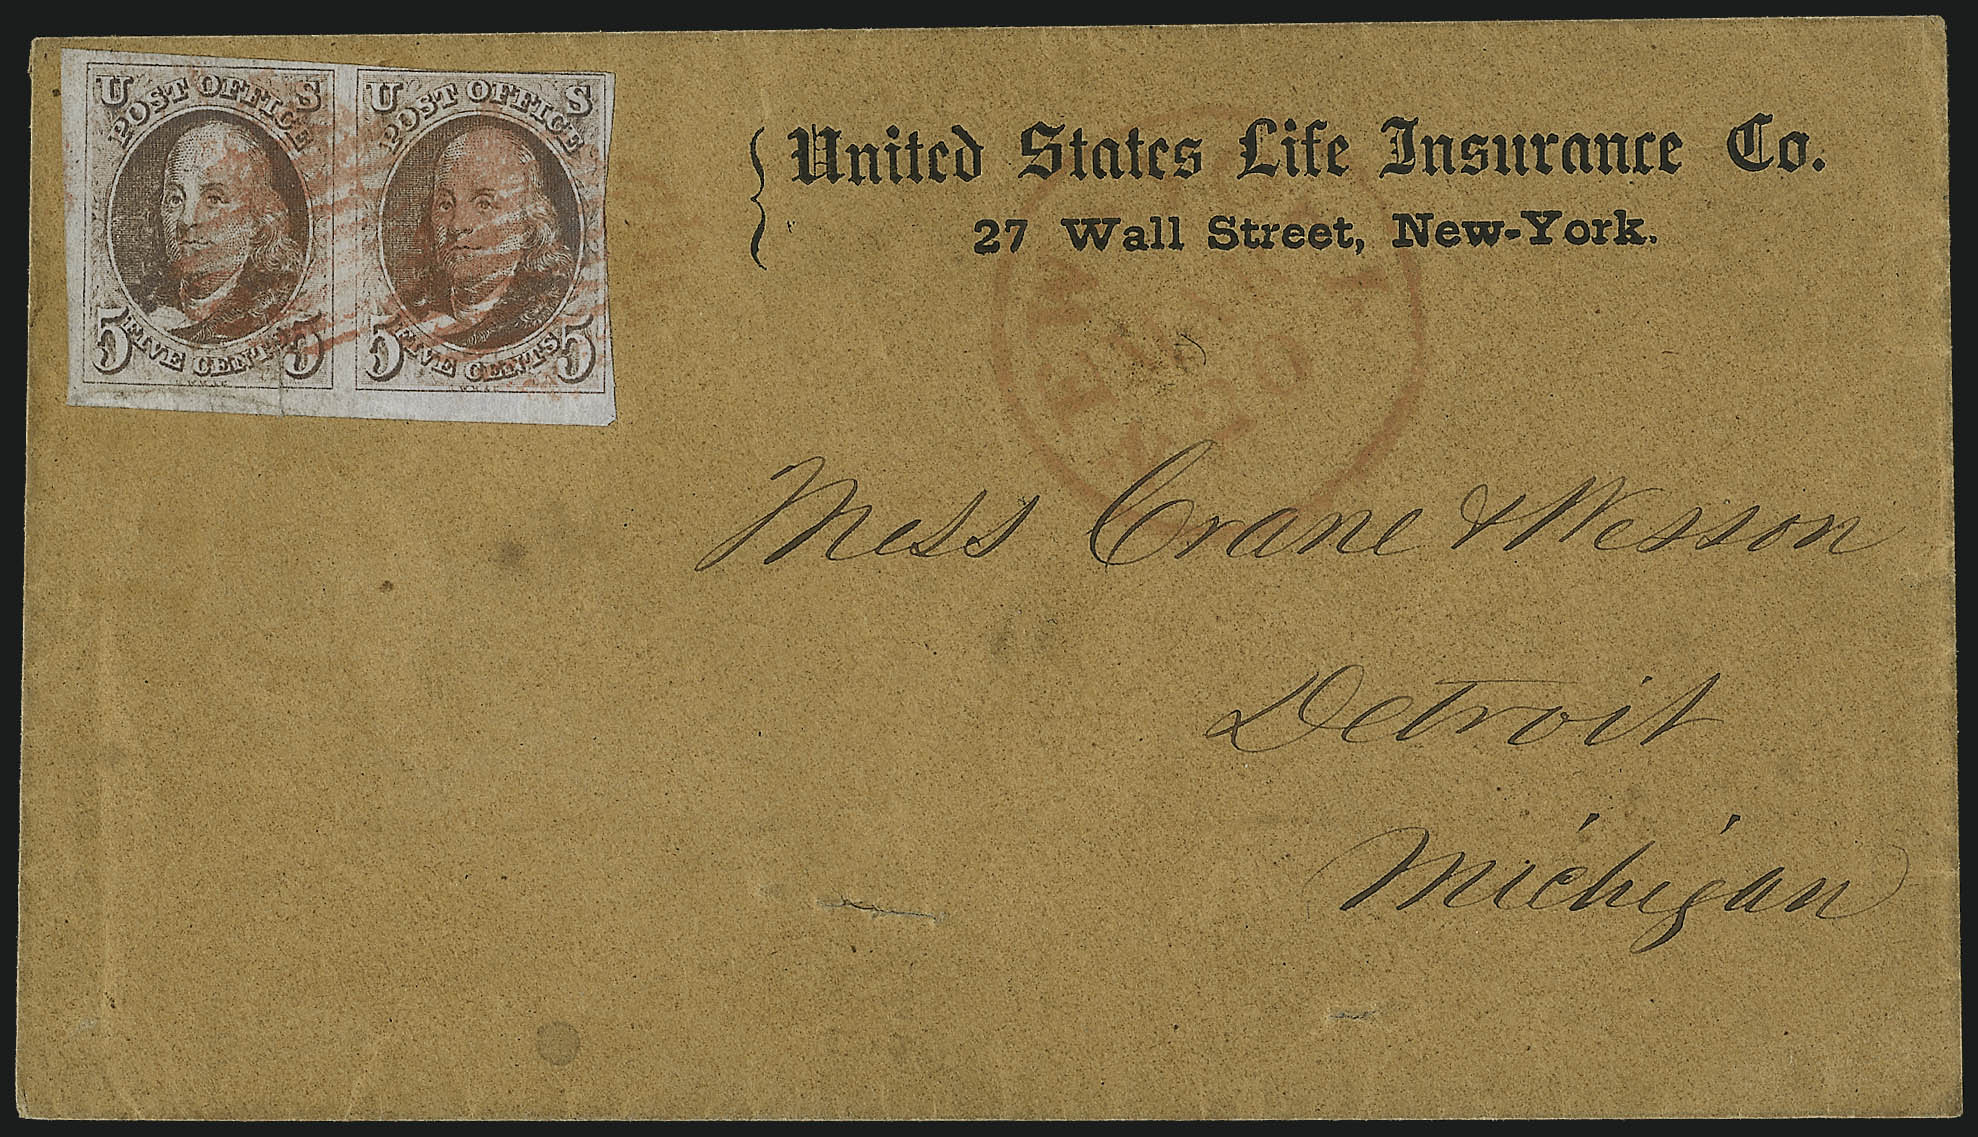 U S
POST OFFICE
5 FIVE CENTS 5
U S
POST OFFICE
5 FIVE CENTS 5
United States Life Insurance Co.
27 Wall Street, New-York.
Mess Crane & Wesson
Detroit
Michigan